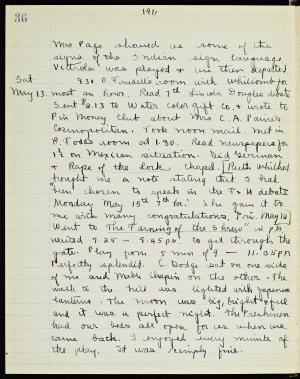 36
1911
Mrs Page showed us some of the
signs of the Indian sign language.
Victrola was played + we then departed
Sat. 8:30 O. Trudell's room with Whilions for
May 13. most an hour. Read 7th Lincoln Douglas debate
Sent $2.13 to Water Color Gift Co. + wrote to
Pin Money Club about Mrs C. A. Paine's
Cosmopolitan. Took noon mail. Met in
R. Todes room at 1.30. Read newspapers for
1½ on Mexican situation. Did German
+ Rape of the Lock. chapel. Ruth Whilhed
brought me a note stating that I had
"been chosen to speak in the T + H debate
Monday May 15th, 9 hr." She gave it to
me with many congratulations. Fri. May 12
Went to "The Taming of the Shrew" in P.M.
waited 7.25 – 8.45 P.M. to get through the
gate. Play from 5 min of 9 – 11.05 P.M.
Perfectly splendid. C. Dodge sat on one side
of me and Mable Chapin on the other. The
walk to the hill was lighted with Japanese
lanterns. The moon was big, bright + full
and it was a perfect night. The Freshmen
had our beds all open for us when we
came back. I enjoyed every minute of
the play. It was simply fine.